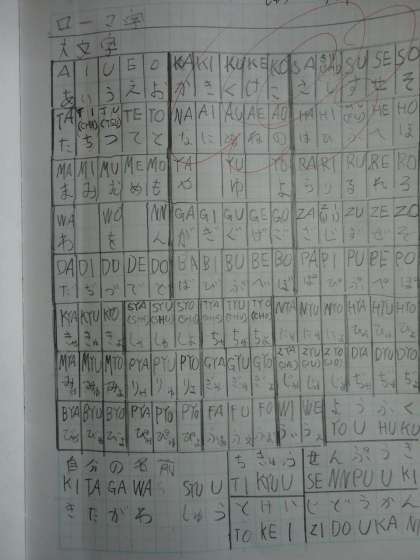 ローマ字
大文字
A I U E O KA KI KU KE KO SA SU SE SO
あ い う え お か き く け こ さ し す せ そ
TA TI (CHI) TU (TSU) TE TO NA AI AU AE AO HA HI HE HO
た ち つ て と な に ぬ ね の は ひ ふ へ ほ
MA MI MU ME MO YA YU YO RA RI RU RE RO
ま み む め も や ゆ よ ら り る れ ろ
WA WO NN GA GI GU GE GO ZA ZU ZE ZO
わ を ん が ぎ ぐ げ ご ざ じ ず ぜ ぞ
DA DI DU DE DO BA BI BU BE BO PA PI PU PE PO
だ ぢ づ で ど ば び ぶ べ ぼ ぱ ぴ ぷ ぺ ぽ
KYA KYU KYO SYA SYU SYO TYA TYU TYO NYA NYU NYO HYA HYU HYO
きゃ きゅ きょ しゃ しゅ しょ ちゃ ちゅ ちょ にゃ にゅ にょ ひゃ ひゅ ひょ
MYA MYU MYO RYA RYU RYO GYA GYU GYO ZYA ZYU ZYO DYA DYU DYO
みゃ みゅ みょ りゃ りゅ りょ ぎゃ ぎゅ ぎょ じゃ じゅ じょ
BYA BYU BYO PYA PYU PYO FA FU FO WI WE ようふく
びゃ びゅ びょ ぴゃ ぴゅ ぴょ ふぁ YO U HU KU
自分の名前 ちきゅう せんぷうき
KI TA GA WA SYU U TI KYU U SE NN PU U KI
きたがわ しゅう とけい じどうかん
TO KE I ZI DO U KA N